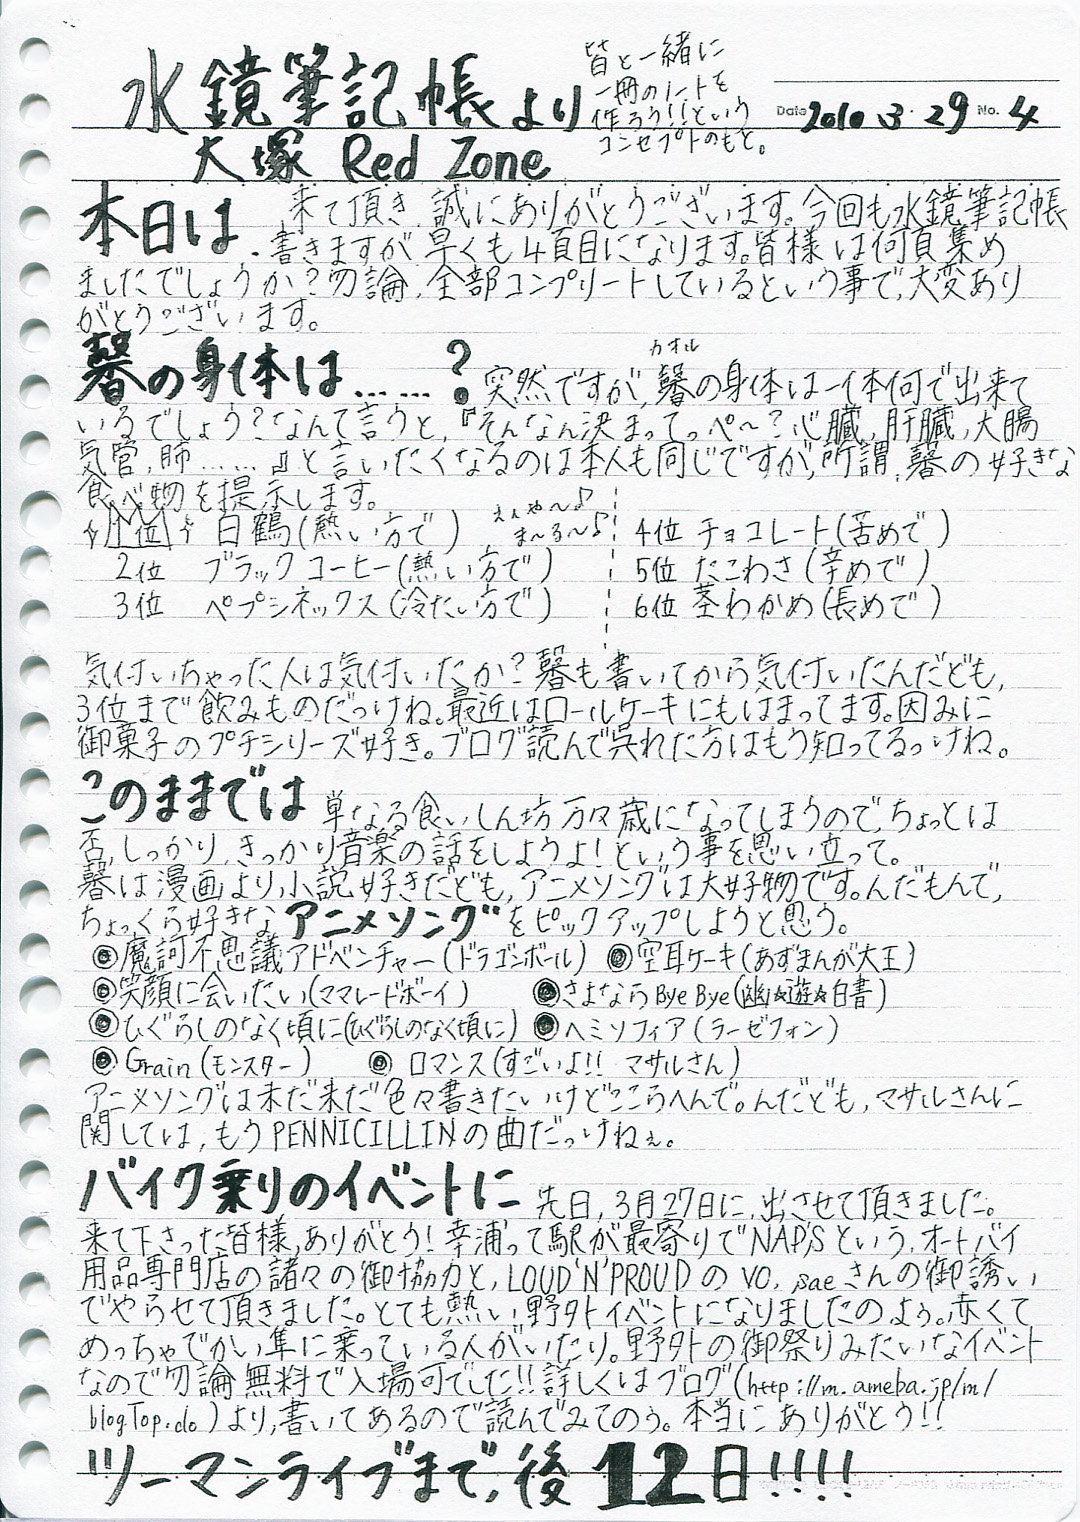 水鏡筆記帳より
皆と一緒に
一冊のノートを
作ろう!!という
コンセプトのもと。
Date 2010 . 3 . 29 No. 4
大塚 Red Zone
本日は 来て頂き、誠にありがとうございます。今回も水鏡筆記帳
書きますが、早くも4頁目になります。皆様は何頁集め
ましたでしょうか?勿論、全部コンプリートしているという事で、大変あり
がとうございます。
馨の身体は……? 突然ですが、馨の身体は一体何で出来て
カオル
いるでしょう?なんて言うと、『そんなん決まってっぺ〜?心臓、肝臓、大腸
気管、肺……』と言いたくなるのは本人も同じですが、所謂、馨の好きな
食べ物を提示します。
1位 白鶴(熱い方で)
えんや〜♪
ま〜る〜♪
4位 チョコレート(苦めで)
2位 ブラックコーヒー(熱い方で)
5位 たこわさ(辛めで)
3位 ペプシネックス(冷たい方で)
6位 茎わかめ(長めで)
気付いちゃった人は気付いたか?馨も書いてから気付いたんだども、
3位まで飲みものだっけね。最近はロールケーキにもはまってます。因みに
御菓子のプチシリーズ好き。ブログ読んで呉れた方はもう知ってるっけね。
このままでは 単なる食いしん坊万々歳になってしまうので、ちょっとは
否、しっかり、きっかり音楽の話をしようよ!という事を思い立って。
馨は漫画より小説好きだども、アニメソングは大好物です。んだもんで、
ちょっくら好きなアニメソングをピックアップしようと思う。
◎魔訶不思議アドベンチャー(ドラゴンボール) ◎空耳ケーキ(あずまんが大王)
◎笑顔に会いたい(ママレードボーイ) ◎さよならByeBye(幽☆遊☆白書)
◎ひぐらしのなく頃に(ひぐらしのなく頃に) ◎ヘミソフィア(ラーゼフォン)
◎Grain(モンスター) ◎ロマンス(すごいよ!!マサルさん)
アニメソングは未だ未だ色々書きたいけどここらへんで。んだども、マサルさんに
関しては、もうPENNICILLINの曲だっけねぇ。
バイク乗りのイベントに 先日、3月27日に、出させて頂きました。
来て下さった皆様、ありがとう!幸浦って駅が最寄りでNAP'Sという、オートバイ
用品専門店の諸々の御協力と、LOUD'N'PROUDのVO, saeさんの御誘い
でやらせて頂きました。とても熱い野外イベントになりましたのよぅ。赤くて
めっちゃでかい隼に乗っている人がいたり。野外の御祭りみたいなイベント
なので勿論無料で入場可でした!!詳しくはブログ(http://m.ameba.jp/m/
blogTop.do)より、書いてあるので読んでみてのぅ。本当にありがとう!!
ツーマンライブまで、後12日!!!!